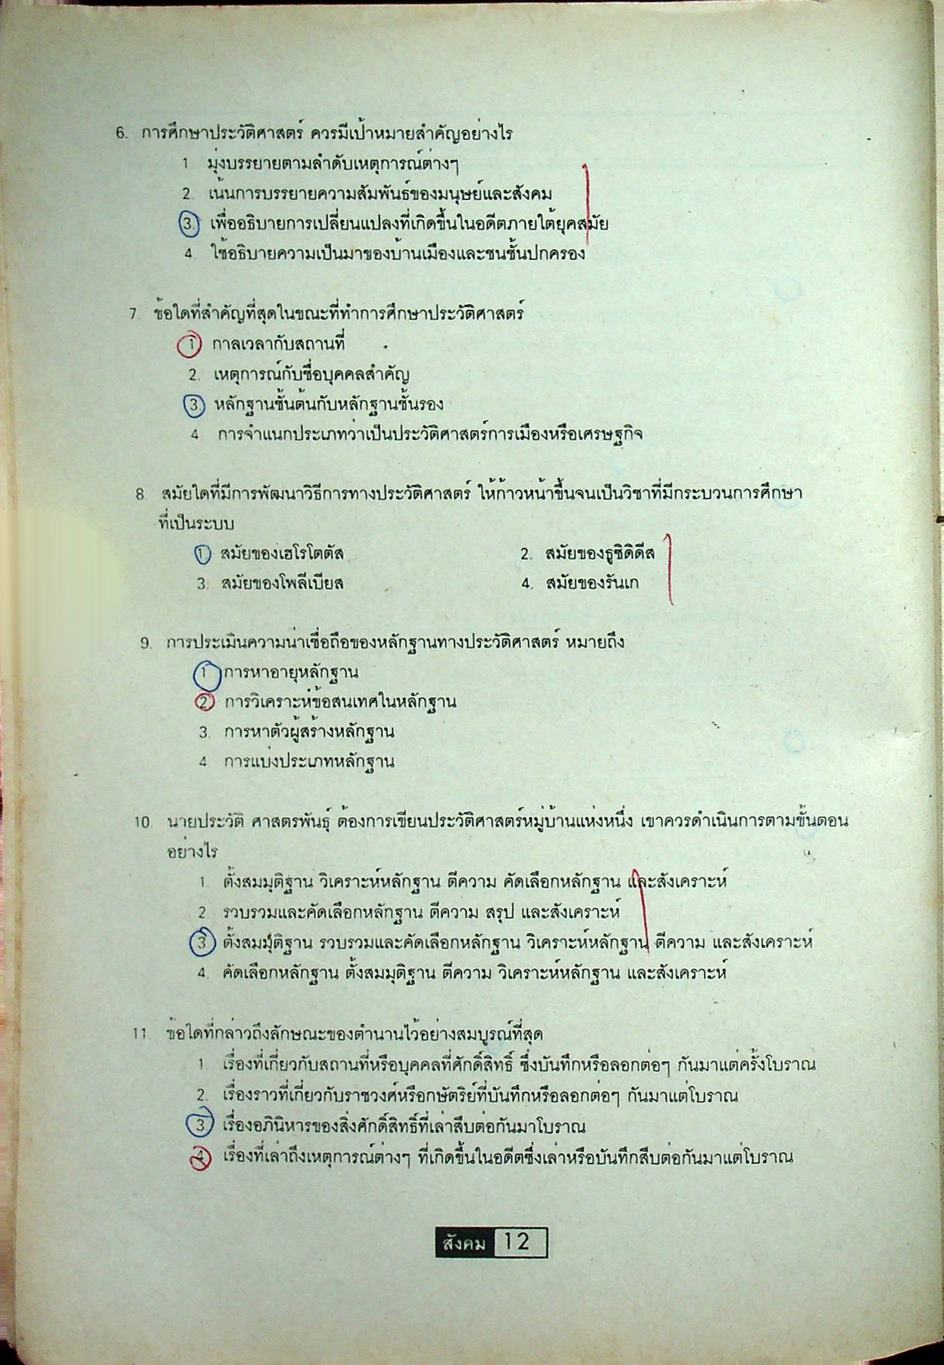 6. การศึกษาประวัติศาสตร์ ควรมีเป้าหมายสำคัญอย่างไร
1 มุ่งบรรยายตามลำดับเหตุการณ์ต่างๆ
2. เน้นการบรรยายความสัมพันธ์ของมนุษย์และสังคม
3. เพื่ออธิบายการเปลี่ยนแปลงที่เกิดขึ้นในอดีตภายใต้ยุคสมัย
4 ใช้อธิบายความเป็นมาของบ้านเมืองและชนชั้นปกครอง
7. ข้อใดที่สำคัญที่สุดในขณะที่ทำการศึกษาประวัติศาสตร์
1 กาลเวลากับสถานที่
2. เหตุการณ์กับชื่อบุคคลสำคัญ
3 หลักฐานชั้นต้นกับหลักฐานชั้นรอง
4 การจำแนกประเภทว่าเป็นประวัติศาสตร์การเมืองหรือเศรษฐกิจ
8. สมัยใดที่มีการพัฒนาวิธีการทางประวัติศาสตร์ ให้ก้าวหน้าขึ้นจนเป็นวิชาที่มีกระบวนการศึกษา
ที่เป็นระบบ
1. สมัยของเฮโรโตตัส 2. สมัยของธูซิดิดีส
3. สมัยของโพลีเบียส 4. สมัยของรันเก
9. การประเมินความน่าเชื่อถือของหลักฐานทางประวัติศาสตร์ หมายถึง
1 การหาอายุหลักฐาน
2. การวิเคราะห์ข้อสนเทศในหลักฐาน
3. การหาตัวผู้สร้างหลักฐาน
4 การแบ่งประเภทหลักฐาน
10. นายประวัติ ศาสตรพันธุ์ ต้องการเขียนประวัติศาสตร์หมู่บ้านแห่งหนึ่ง เขาควรดำเนินการตามขั้นตอน
อย่างไร
1. ตั้งสมมุติฐาน วิเคราะห์หลักฐาน ตีความ คัดเลือกหลักฐาน และสังเคราะห์
2 รวบรวมและคัดเลือกหลักฐาน ตีความ สรุป และสังเคราะห์
3 ตั้งสมมุติฐาน รวบรวมและคัดเลือกหลักฐาน วิเคราะห์หลักฐาน ตีความ และสังเคราะห์
4. คัดเลือกหลักฐาน ตั้งสมมุติฐาน ตีความ วิเคราะห์หลักฐาน และสังเคราะห์
11. ข้อใดที่กล่าวถึงลักษณะของตำนานไว้อย่างสมบูรณ์ที่สุด
1 เรื่องที่เกี่ยวกับสถานที่หรือบุคคลที่ศักดิ์สิทธิ์ ซึ่งบันทึกหรือลอกต่อๆ กันมาแต่ครั้งโบราณ
2. เรื่องราวที่เกี่ยวกับราชวงศ์หรือกษัตริย์ที่บันทึกหรือลอกต่อๆ กันมาแต่โบราณ
3 เรื่องอภินิหารของสิ่งศักดิ์สิทธิ์ที่เล่าสืบต่อกันมาโบราณ
4 เรื่องที่เล่าถึงเหตุการณ์ต่างๆ ที่เกิดขึ้นในอดีตซึ่งเล่าหรือบันทึกสืบต่อกันมาแต่โบราณ
สังคม 12